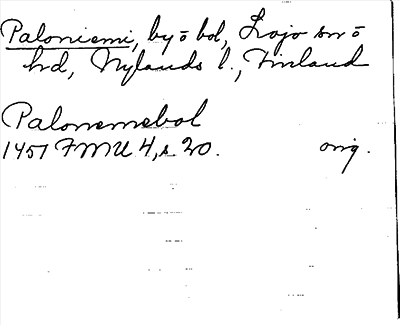 Paloniemi, by ō bol, Lojo sn ō
hd, Nylands l., Finland
Palonemebol
1451 FMU 4, s 20. orig.